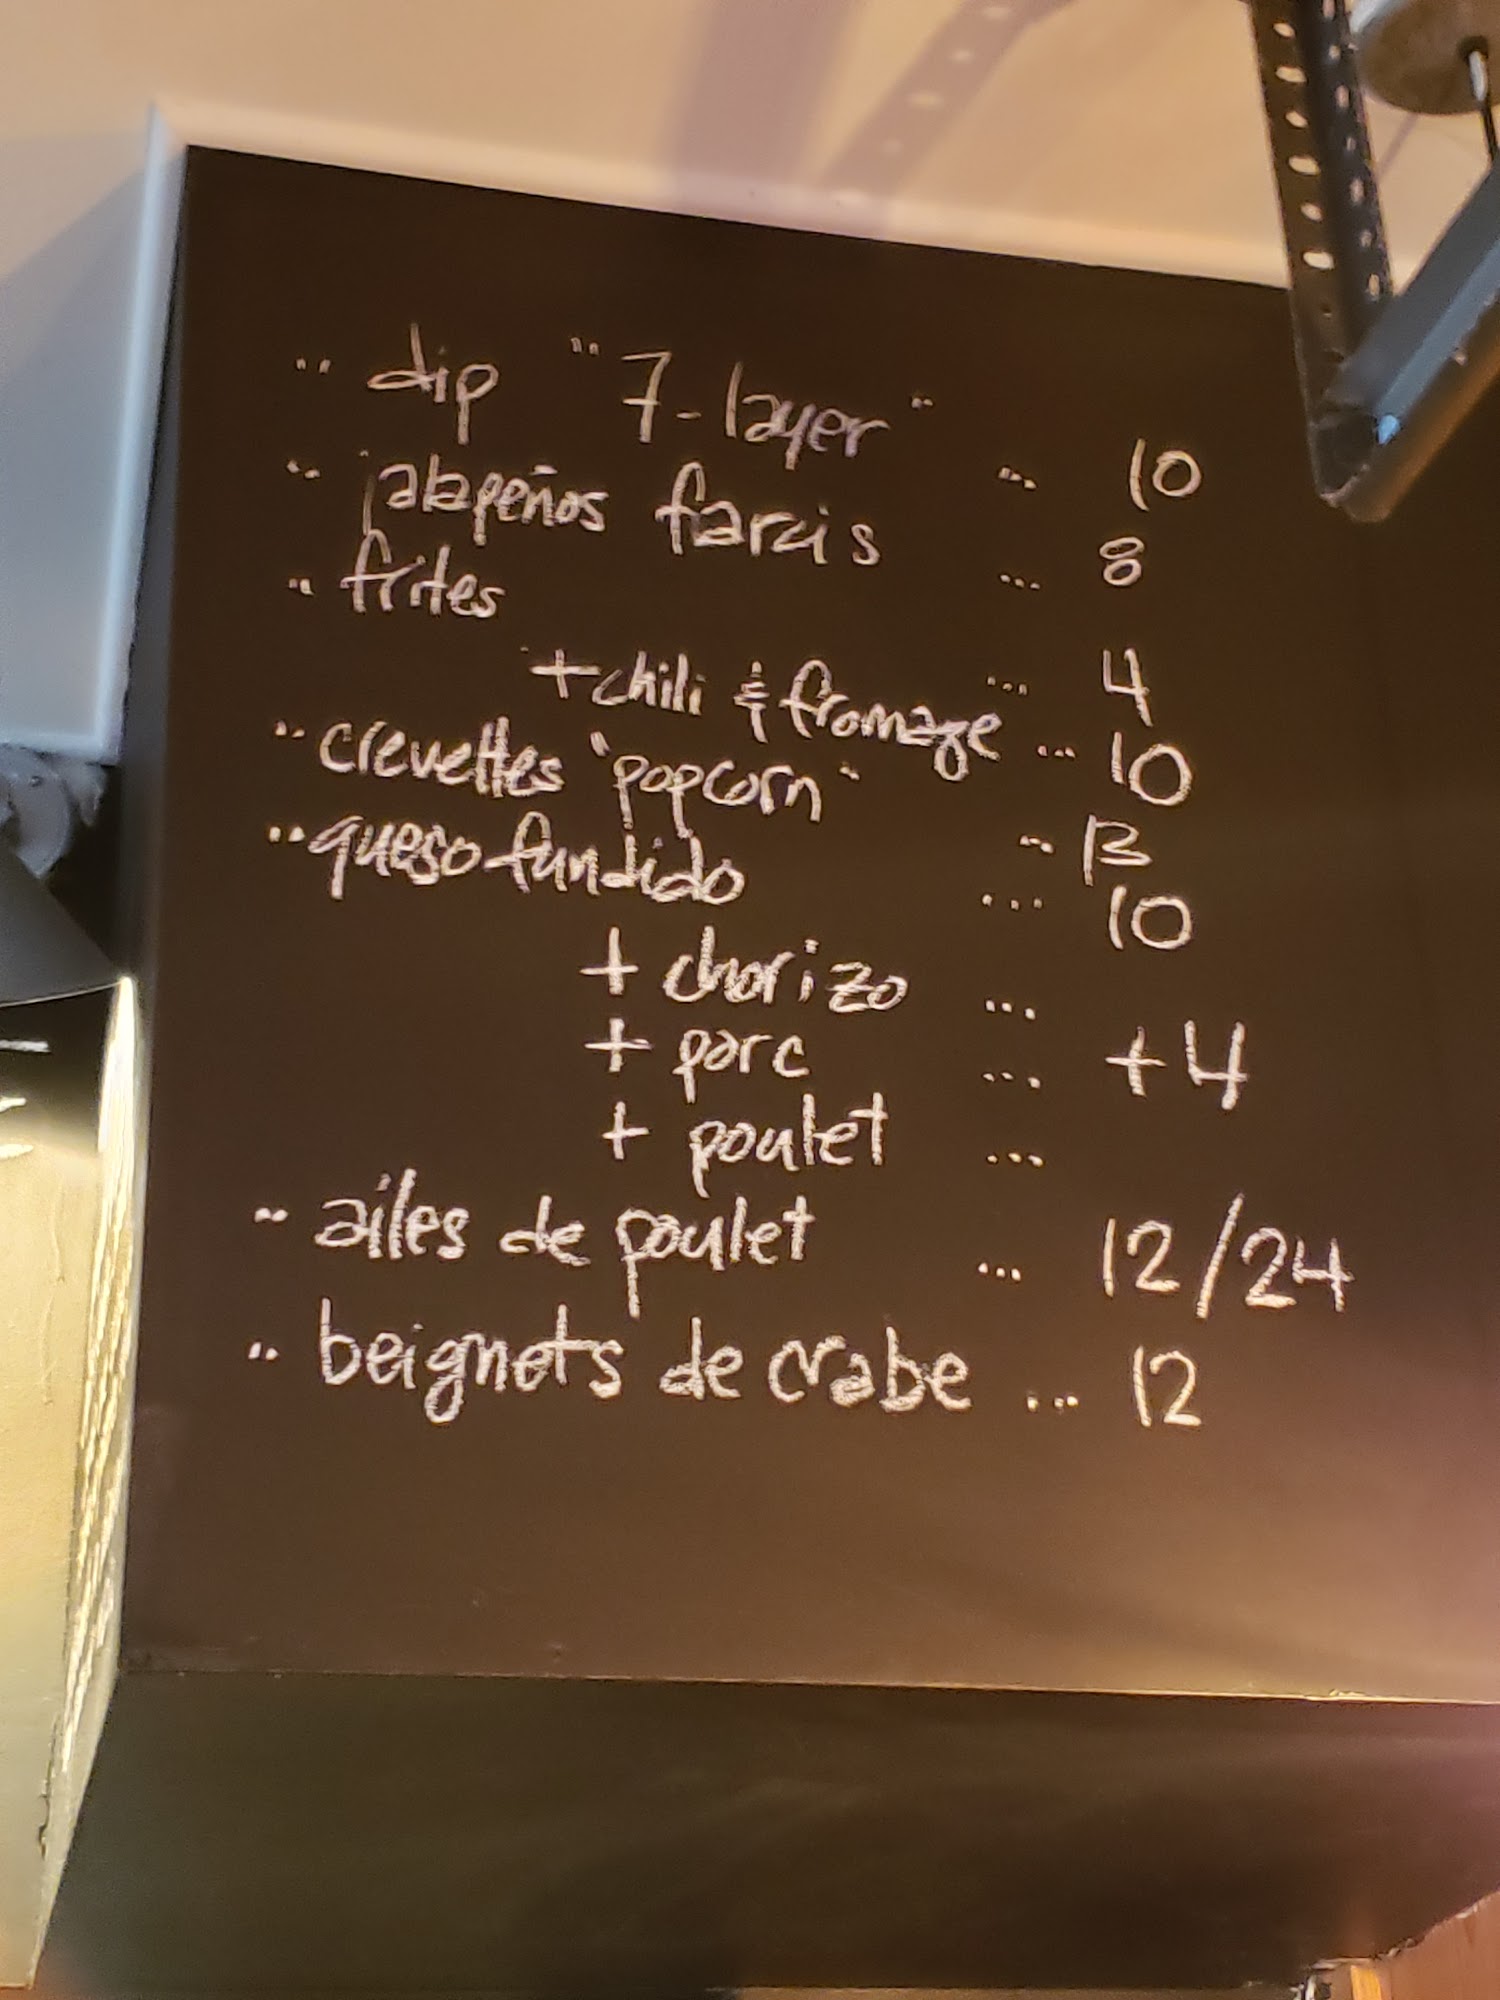 " dip "7-layer" ... 10
" jalapeños farcis ... 8
" frites ... 4
+ chili & fromage ... 10
" crevettes "popcorn" ... 13
" queso fundido ... 10
+ chorizo ...
+ porc ... +4
+ poulet ...
" ailes de poulet ... 12/24
" beignets de crabe ... 12